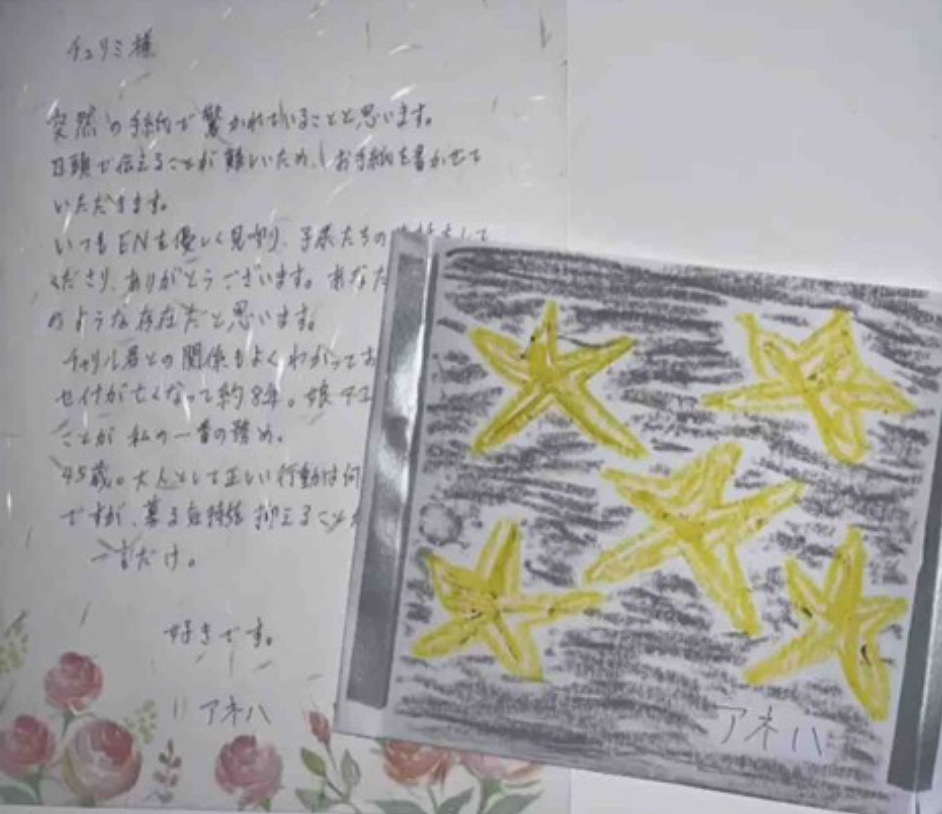 チュリミ様
突然の手紙で驚かれていることと思います。
口頭で伝えることが難しいため、お手紙を書かせて
いただきます。
いつもENを優しく見守り、子供たちの
くださり、ありがとうございます。あなた
のような存在だと思います。
チャリル君との関係もよくわかってお
セイカが亡くなって約8年。娘
ことが私の一番の務め。
45歳。大人として正しい行動は何
ですが、募る気持を抑えること
一言だけ。
好きです。
アネハ
アネハ